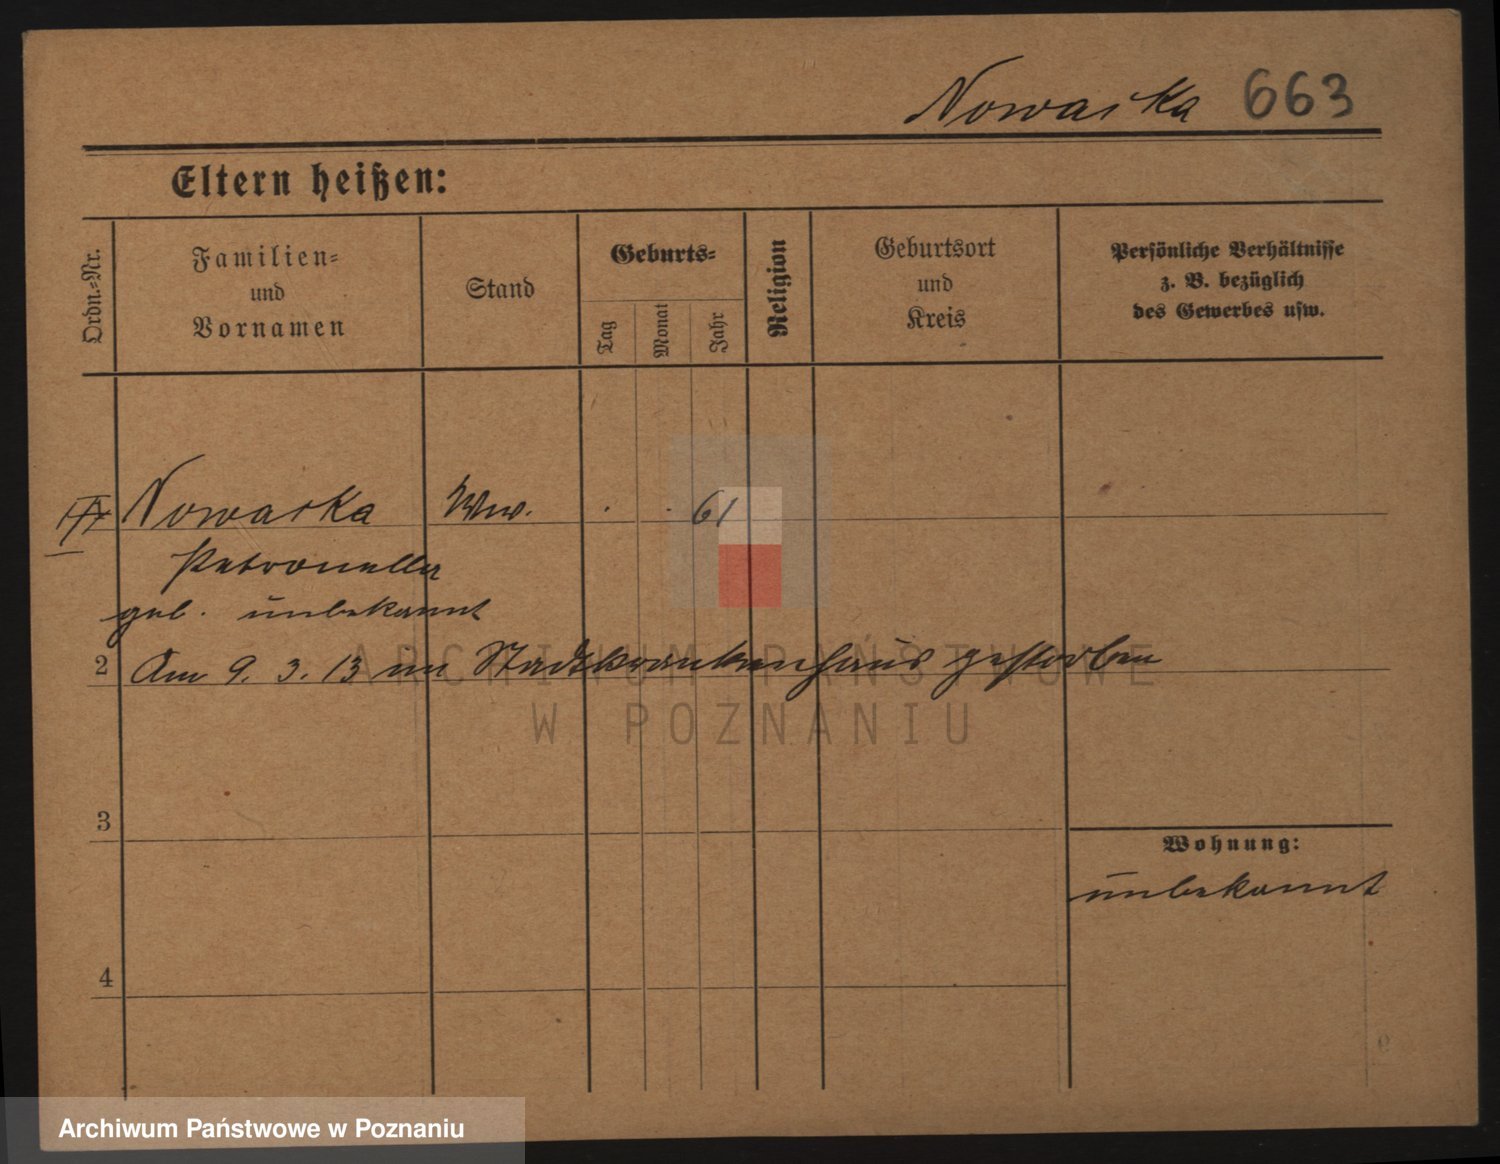 Nowacka 663
Eltern heißen:
Ordn.=Nr.
Familien=
und
Vornamen
Stand
Geburts=
Tag
Monat
Jahr
Religion
Geburtsort
und
Kreis
Persönliche Verhältnisse
z. B. bezüglich
des Gewerbes usw.
Nowacka Ww. . . 61
Petronella
geb. unbekannt
2 Am 9. 3. 13 im Stadtkrankenhaus gestorben
ARCHIWUM PAŃSTWOWE
W POZNANIU
3
Wohnung:
unbekannt
4
Archiwum Państwowe w Poznaniu